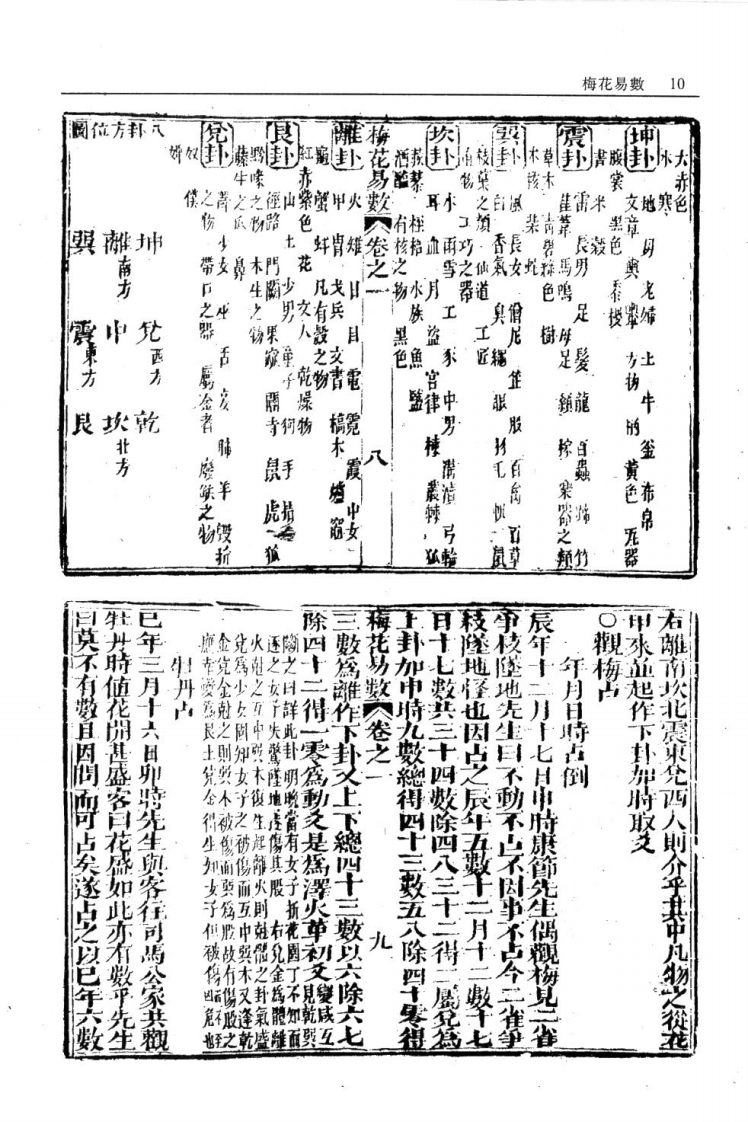 梅花易數 10
大赤色
水寒
坤卦 地 母 老婦 土 牛 釜 布帛
文章 輿 方物 柄 黃色 瓦器
腹 裳 黑色 黍稷
書 米 穀
震卦 雷 長男 足 髮 龍 百蟲 蹄 竹
萑葦 馬鳴 母足 顙 稼 樂器之類
草木 青碧綠色 樹
木核 柴 蛇
巽卦 風 長女 僧尼 鷄 股 百禽 百草
臼 香氣 臭 繩 眼 羽毛 帆
枝葉之類 仙道 工匠
直物 工巧之器
坎卦 水 雨雪 工 豕 中男 溝瀆 弓輪
耳 血 月 盜 宮律 棟 叢棘 狐
蒺藜 桎梏 水族 魚 鹽
酒醢 有核之物 黑色
梅花易數 卷之一 八
離卦 火 雉 日 目 電 霓 霞 中女
甲胄 戈兵 文書 槁木 爐
龜 蟹 蚌 凡有殼之物
紅赤紫色 花 文人 乾燥物
艮卦 山 土 少男 童子 狗 手 指
徑路 門闕 果蓏 閽寺 鼠 虎 狐
黔喙之物 木生之物
藤生之瓜 鼻
兌卦 澤 少女 巫 舌 妾 肺 羊 毀折
之物 帶口之器 屬金者 廢缺之物
奴僕
婢
八卦方位圖
坤 兌西方 乾
離南方 中 坎北方
巽 震東方 艮
右離南坎北震東兌西人則介乎其中凡物之從花
甲來並起作下卦加時取爻
○觀梅占
年月日時占例
辰年十二月十七日申時康節先生偶觀梅見二雀
爭枝墜地先生曰不動不占不因事不占今二雀爭
枝墜地怪也因占之辰年五數十二月十二數十七
日十七數共三十四數除四八三十二得二屬兌為
上卦加申時九數總得四十三數五八除四十零得
梅花易數 卷之一 九
三數為離作下卦又上下總四十三數以六除六七
除四十二得一零為動爻是為澤火革初爻變咸互
見乾巽
斷之曰詳此卦明晚當有女子折花園丁不知而
逐之女子失驚墜地遂傷其股 右兌金為體離
火尅之互中巽木復生起離火則尅體之卦氣盛
兌為少女因知女子之被傷而互中巽木又逢乾
金兌金尅之則巽木被傷而巽為股故有傷股之
應幸變為艮土兌金得生知女子但被傷而不至凶危也
牡丹占
巳年三月十六日卯時先生與客往司馬公家共觀
牡丹時値花開甚盛客曰花盛如此亦有數乎先生
曰莫不有數且因問而可占矣遂占之以巳年六數